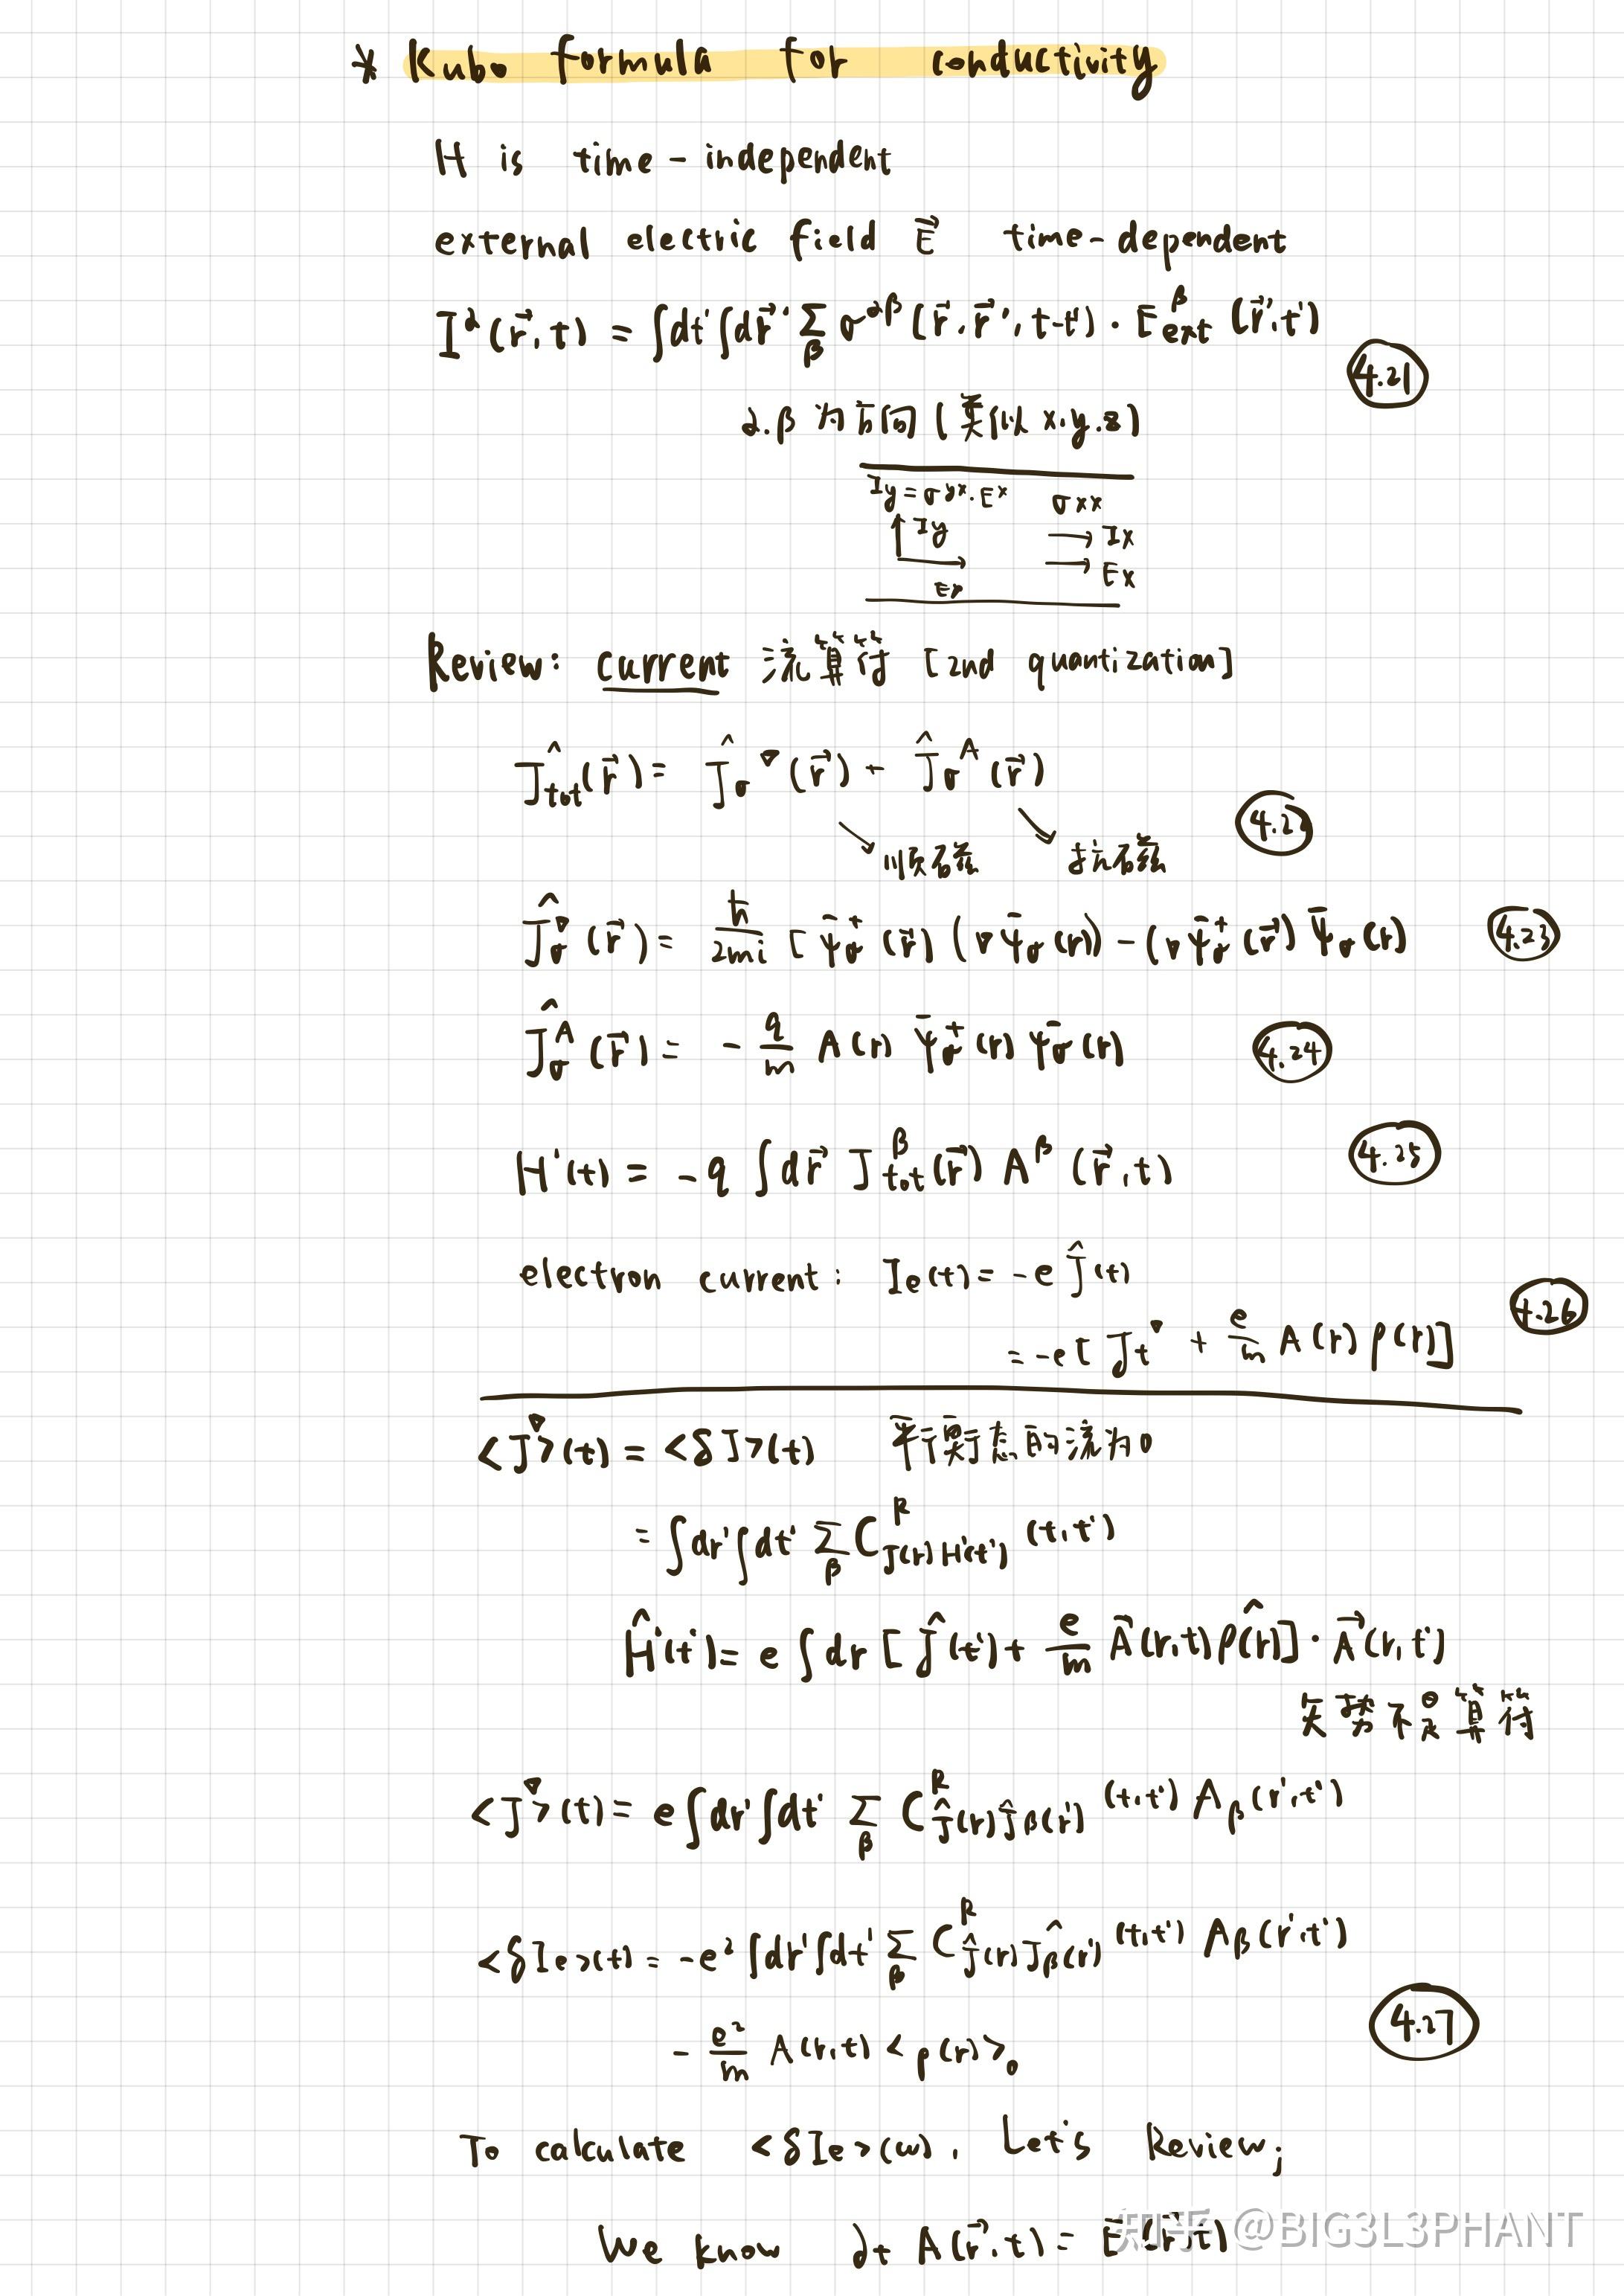 * Kubo formula for conductivity
H is time-independent
external electric field E⃗ time-dependent
I^α(r⃗,t) = ∫dt'∫dr⃗' Σ_β σ^{αβ}(r⃗,r⃗',t-t')·E_ext^β(r⃗',t')
4.21
α.β 为方向(类似 x.y.z)
I_y=σ^{yx}·E^x σ^{xx}
↑I_y → I_x
→ E_x
Review: current 流算符 [2nd quantization]
Ĵ_tot(r⃗) = Ĵ_σ^∇(r⃗) + Ĵ_σ^A(r⃗)
4.22
↘顺磁 ↘抗磁
Ĵ_σ^∇(r⃗) = ħ/2mi [Ψ̄_σ^+(r⃗)(∇Ψ̄_σ(r)) - (∇Ψ̄_σ^+(r⃗)) Ψ̄_σ(r) 4.23
Ĵ_σ^A(r⃗) = - q/m A(r) Ψ̄_σ^+(r) Ψ̄_σ(r) 4.24
H'(t) = -q ∫dr⃗ J_tot^β(r⃗) A^β(r⃗,t) 4.25
electron current: I_e(t) = -e Ĵ(t)
4.26
= -e [J_t^∇ + e/m A(r) ρ(r)]
<J^∇>(t) = <δJ>(t) 平衡态的流为0
= ∫dr'∫dt' Σ_β C^R_{J(r)H'(t')} (t,t')
Ĥ'(t') = e ∫dr [Ĵ(t') + e/m A⃗(r,t) ρ̂(r)]·A⃗(r,t')
矢势不是算符
<J^∇>(t) = e∫dr'∫dt' Σ_β C^R_{Ĵ(r)Ĵβ(r')} (t,t') A_β(r',t')
<δI_e>(t) = -e²∫dr'∫dt' Σ_β C^R_{Ĵ(r)Ĵβ(r')} (t,t') A_β(r',t')
4.27
- e²/m A(r,t) <ρ(r)>_0
To calculate <δI_e>(ω), Let's Review;
We know ∂_t A(r⃗,t) = E⃗(r⃗,t)
知乎 @BIG3L3PHANT